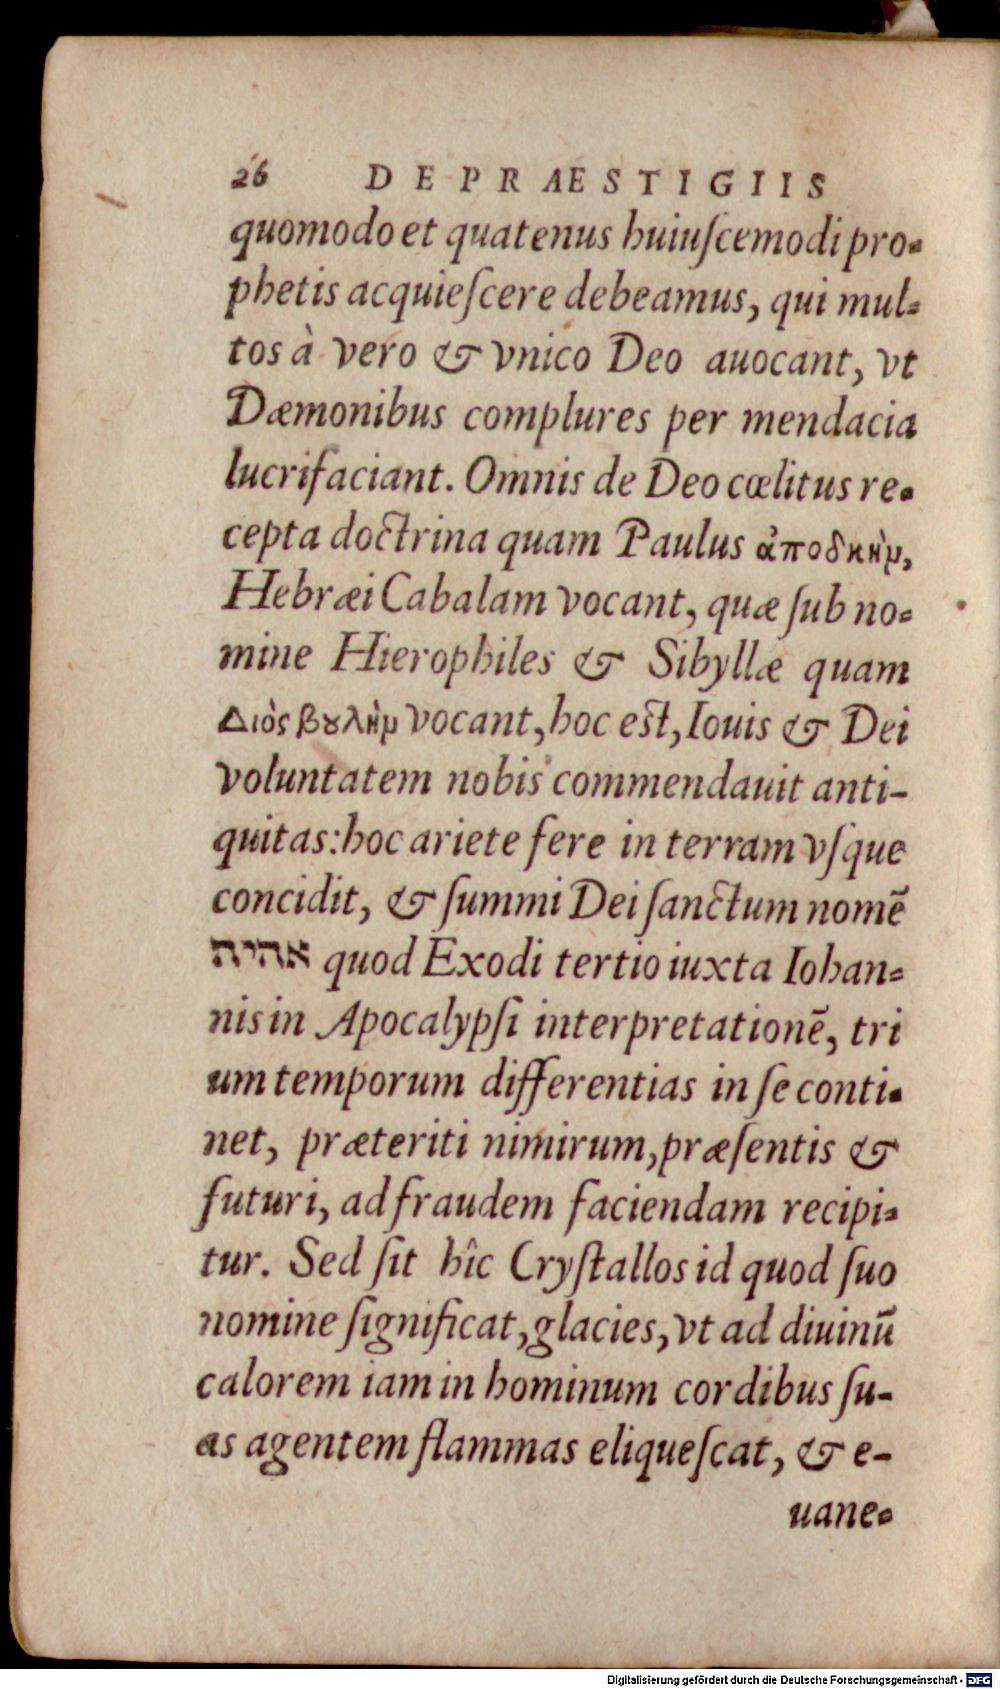 26 DE PRAESTIGIIS
quomodo et quatenus huiuſcemodi pro-
phetis acquieſcere debeamus, qui mul-
tos à vero & vnico Deo auocant, vt
Dæmonibus complures per mendacia
lucrifaciant. Omnis de Deo cœlitus re-
cepta doctrina quam Paulus ἀποδκὴν,
Hebræi Cabalam vocant, quæ ſub no-
mine Hierophiles & Sibyllæ quam
Διὸς βουλὴν vocant, hoc est, Iouis & Dei
voluntatem nobis commendauit anti-
quitas: hoc ariete fere in terram vſque
concidit, & ſummi Dei ſanctum nomē
אהיה quod Exodi tertio iuxta Iohan-
nis in Apocalypſi interpretationē, tri
um temporum differentias in ſe conti-
net, præteriti nimirum, præſentis &
futuri, ad fraudem faciendam recipi-
tur. Sed ſit hîc Cryſtallos id quod ſuo
nomine ſignificat, glacies, vt ad diuinū
calorem iam in hominum cordibus ſu-
as agentem flammas eliqueſcat, & e-
uane-
Digitalisierung gefördert durch die Deutsche Forschungsgemeinschaft - DFG